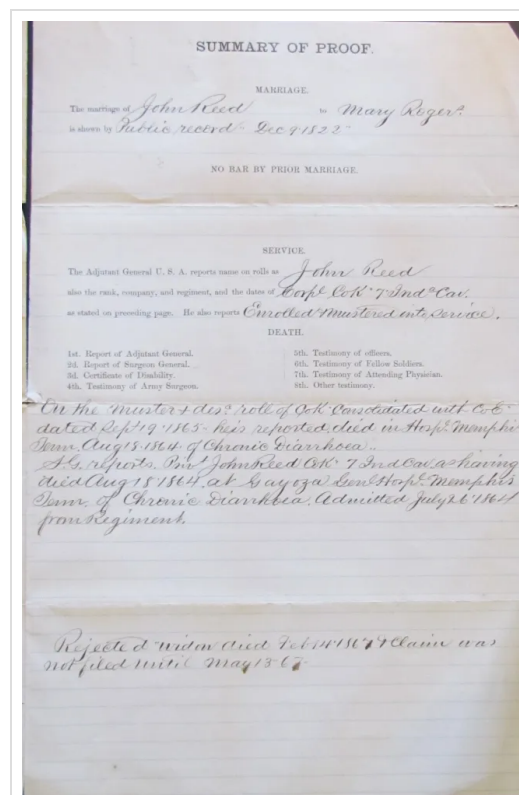 SUMMARY OF PROOF.
MARRIAGE.
The marriage of John Reed to Mary Rogers
is shown by Public record - Dec 9 1822
NO BAR BY PRIOR MARRIAGE.
SERVICE.
The Adjutant General U. S. A. reports name on rolls as John Reed
also the rank, company, and regiment, and the dates of Corpl Co K 7 Inda Cav.
as stated on preceding page. He also reports Enrolled & mustered into service.
DEATH.
1st. Report of Adjutant General.
2d. Report of Surgeon General.
3d. Certificate of Disability.
4th. Testimony of Army Surgeon.
5th. Testimony of officers.
6th. Testimony of Fellow Soldiers.
7th. Testimony of Attending Physician.
8th. Other testimony.
On the muster & desc. role of Co K Consolidated with Co E
dated Sept 19 1865 - he is reported died in Hospl Memphis
Tenn. Aug 18 1864 of Chronic Diarrhoea.
S.G. reports Privt John Reed Co K 7 Ind Cav. as having
died Aug 18 1864, at Gayoza Genl Hospl Memphis
Tenn. of Chronic Diarrhoea. Admitted July 26 1864
from Regiment.
Rejected widow died Feb 14 1867 & Claim was
not filed until May 13 67